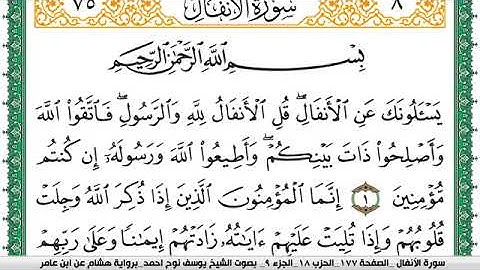 ٧٥ سورة الأنفال ٨
بِسْمِ اللَّهِ الرَّحْمَٰنِ الرَّحِيمِ
يَسْـَٔلُونَكَ عَنِ الْأَنفَالِۖ قُلِ الْأَنفَالُ لِلَّهِ وَالرَّسُولِۖ فَاتَّقُوا اللَّهَ
وَأَصْلِحُوا ذَاتَ بَيْنِكُمْۖ وَأَطِيعُوا اللَّهَ وَرَسُولَهُۥ إِن كُنتُم
مُّؤْمِنِينَ ١ إِنَّمَا الْمُؤْمِنُونَ الَّذِينَ إِذَا ذُكِرَ اللَّهُ وَجِلَتْ
قُلُوبُهُمْ وَإِذَا تُلِيَتْ عَلَيْهِمْ ءَايَٰتُهُۥ زَادَتْهُمْ إِيمَٰنًا وَعَلَىٰ رَبِّهِمْ
سورة الأنفال _الصفحة ١٧٧_الحزب ١٨_الجزء ٩_ بصوت الشيخ يوسف نوح احمد_برواية هشام عن ابن عامر